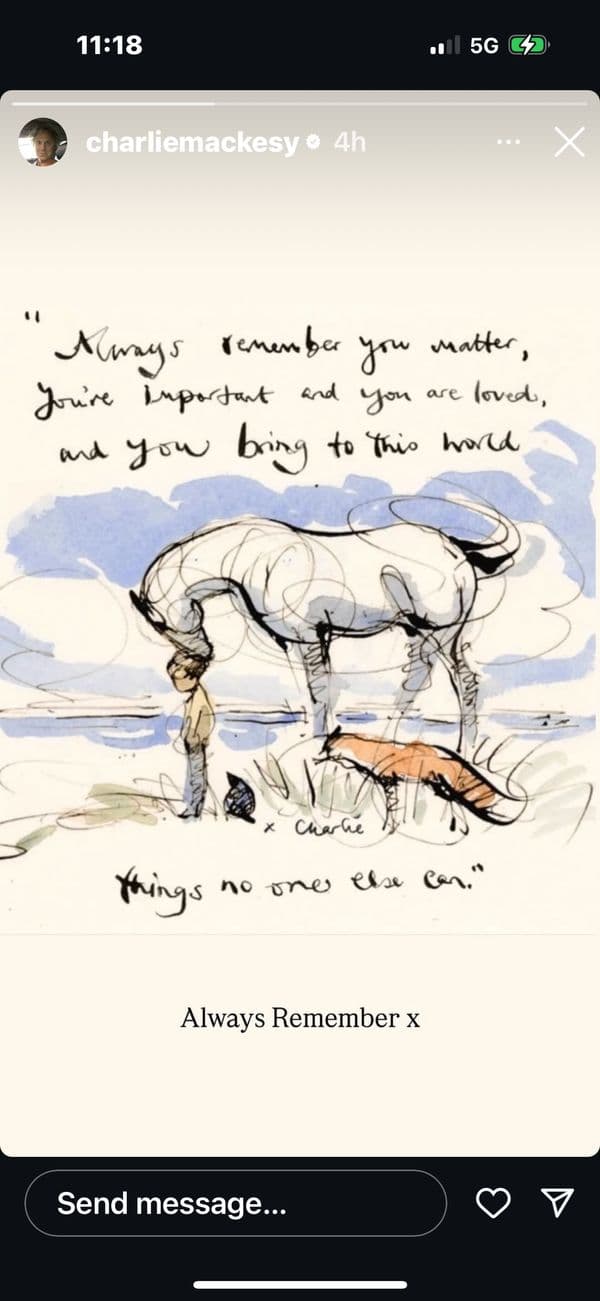 11:18
5G
charliemackesy 4h
"Always remember you matter,
you're important and you are loved,
and you bring to this world
x Charlie
things no one else can."
Always Remember x
Send message...